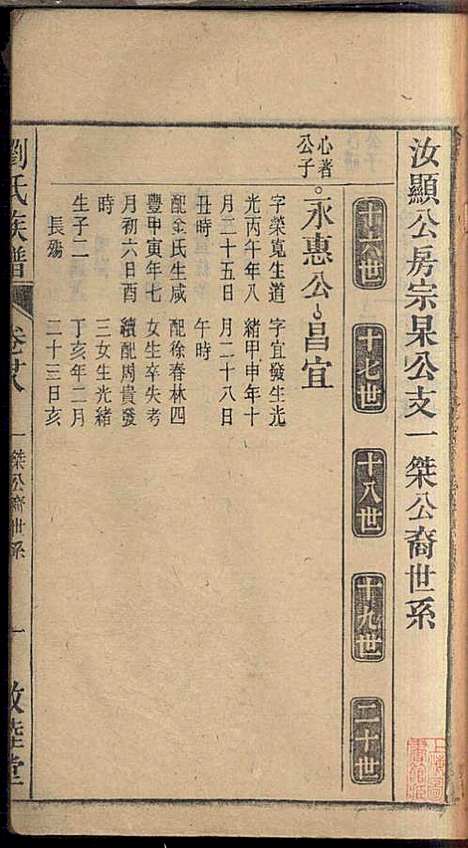 汝顯公房宗杲公支一桀公裔世系
十六世
十七世
十八世
十九世
二十世
心著公子
永惠公
昌宜
字榮寬生道
光丙午年八
月二十五日
丑時
配金氏生咸
豐甲寅年七
月初六日酉
時
生子二
長殤
字宜發生光
緒甲申年十
月二十八日
午時
配徐春林四
女生卒失考
續配周貴發
三女生光緒
丁亥年二月
二十三日亥
劉氏族譜
卷廿八
一桀公裔世系
一
敦睦堂